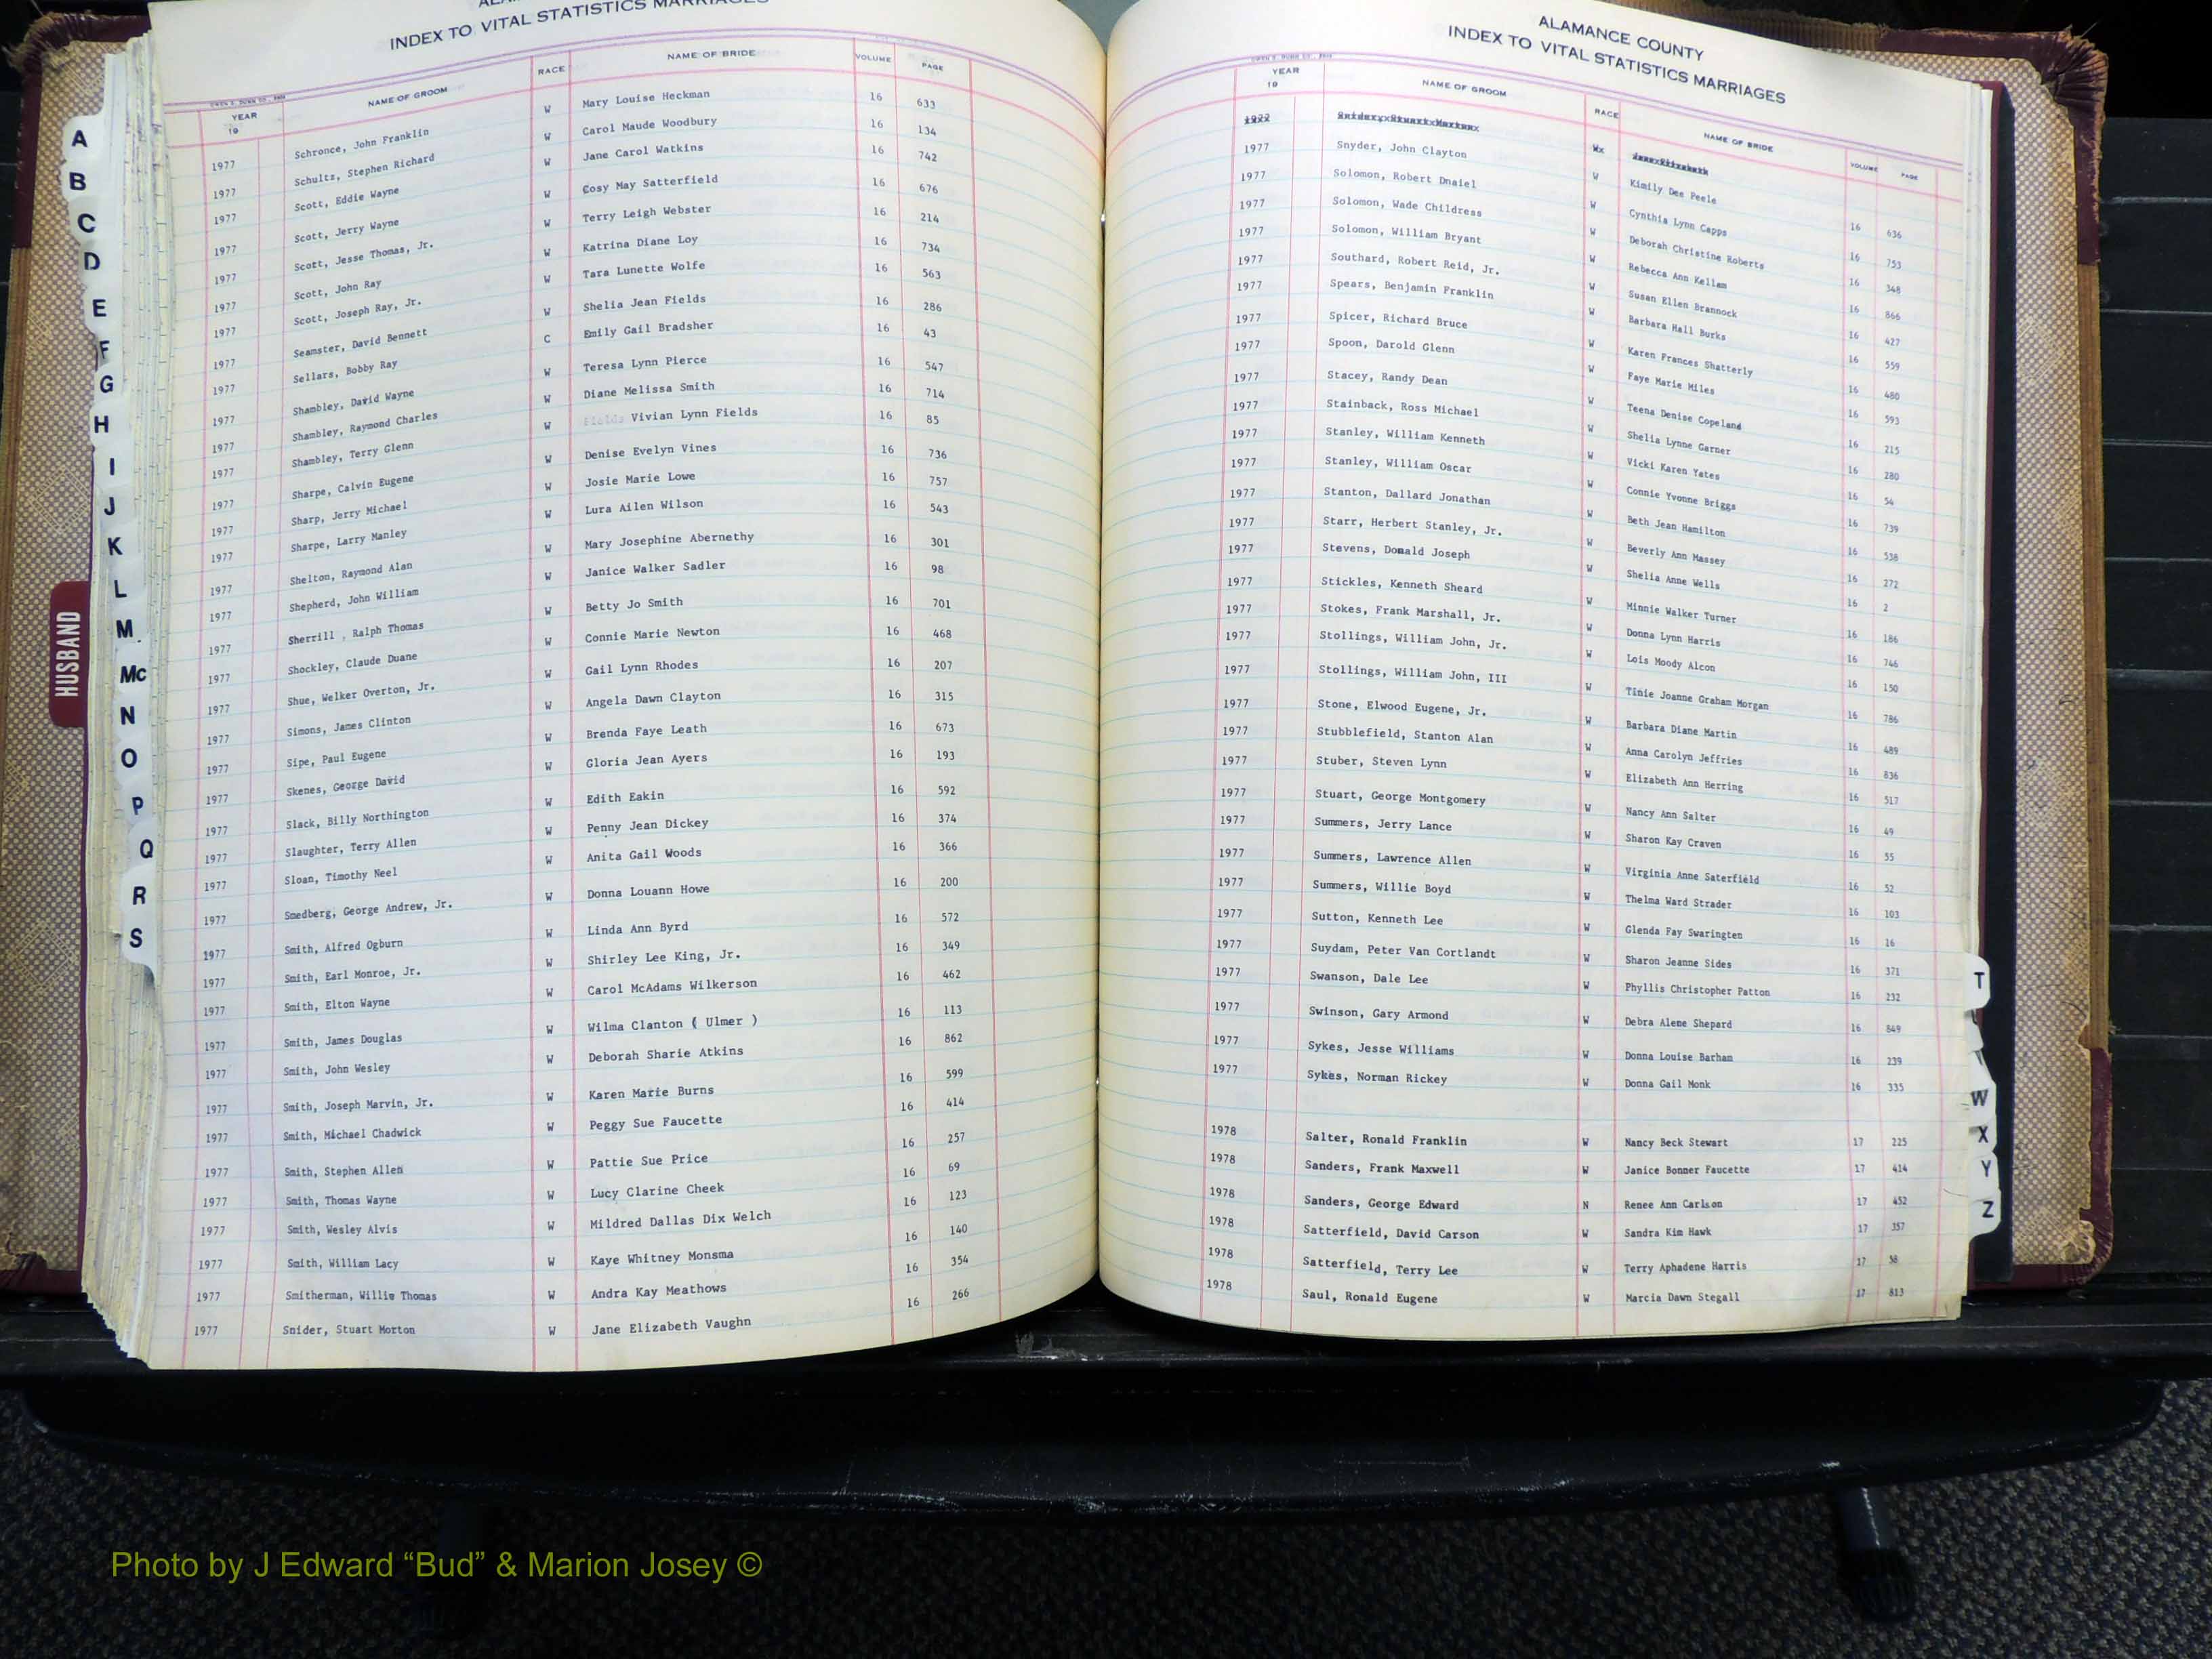 INDEX TO VITAL STATISTICS MARRIAGES
YEAR 19 NAME OF GROOM RACE NAME OF BRIDE VOLUME PAGE
1977 Schronce, John Franklin W Mary Louise Heckman 16 633
1977 Schultz, Stephen Richard W Carol Maude Woodbury 16 134
1977 Scott, Eddie Wayne W Jane Carol Watkins 16 742
1977 Scott, Jerry Wayne W Cosy May Satterfield 16 676
1977 Scott, Jesse Thomas, Jr. W Terry Leigh Webster 16 214
1977 Scott, John Ray W Katrina Diane Loy 16 734
1977 Scott, Joseph Ray, Jr. W Tara Lunette Wolfe 16 563
1977 Seamster, David Bennett W Shelia Jean Fields 16 286
1977 Sellars, Bobby Ray C Emily Gail Bradsher 16 43
1977 Shambley, David Wayne W Teresa Lynn Pierce 16 547
1977 Shambley, Raymond Charles W Diane Melissa Smith 16 714
1977 Shambley, Terry Glenn W Fields Vivian Lynn Fields 16 85
1977 Sharpe, Calvin Eugene W Denise Evelyn Vines 16 736
1977 Sharp, Jerry Michael W Josie Marie Lowe 16 757
1977 Sharpe, Larry Manley W Lura Ailen Wilson 16 543
1977 Shelton, Raymond Alan W Mary Josephine Abernethy 16 301
1977 Shepherd, John William W Janice Walker Sadler 16 98
1977 Sherrill , Ralph Thomas W Betty Jo Smith 16 701
1977 Shockley, Claude Duane W Connie Marie Newton 16 468
1977 Shue, Welker Overton, Jr. W Gail Lynn Rhodes 16 207
1977 Simons, James Clinton W Angela Dawn Clayton 16 315
1977 Sipe, Paul Eugene W Brenda Faye Leath 16 673
1977 Skenes, George David W Gloria Jean Ayers 16 193
1977 Slack, Billy Northington W Edith Eakin 16 592
1977 Slaughter, Terry Allen W Penny Jean Dickey 16 374
1977 Sloan, Timothy Neel W Anita Gail Woods 16 366
1977 Smedberg, George Andrew, Jr. W Donna Louann Howe 16 200
1977 Smith, Alfred Ogburn W Linda Ann Byrd 16 572
1977 Smith, Earl Monroe, Jr. W Shirley Lee King, Jr. 16 349
1977 Smith, Elton Wayne W Carol McAdams Wilkerson 16 462
1977 Smith, James Douglas W Wilma Clanton ( Ulmer ) 16 113
1977 Smith, John Wesley W Deborah Sharie Atkins 16 862
1977 Smith, Joseph Marvin, Jr. W Karen Marie Burns 16 599
1977 Smith, Michael Chadwick W Peggy Sue Faucette 16 414
1977 Smith, Stephen Allen W Pattie Sue Price 16 257
1977 Smith, Thomas Wayne W Lucy Clarine Cheek 16 69
1977 Smith, Wesley Alvis W Mildred Dallas Dix Welch 16 123
1977 Smith, William Lacy W Kaye Whitney Monsma 16 140
1977 Smitherman, Willie Thomas W Andra Kay Meathows 16 354
1977 Snider, Stuart Morton W Jane Elizabeth Vaughn 16 266
A
B
C
D
E
F
G
H
I
J
K
L
M
Mc
N
O
P
Q
R
S
HUSBAND
ALAMANCE COUNTY
INDEX TO VITAL STATISTICS MARRIAGES
YEAR 19 NAME OF GROOM RACE NAME OF BRIDE VOLUME PAGE
1977 Snyder, John Clayton W Kimily Dee Peele 16 636
1977 Solomon, Robert Dnaiel W Cynthia Lynn Capps 16 753
1977 Solomon, Wade Childress W Deborah Christine Roberts 16 348
1977 Solomon, William Bryant W Rebecca Ann Kellam 16 866
1977 Southard, Robert Reid, Jr. W Susan Ellen Brannock 16 427
1977 Spears, Benjamin Franklin W Barbara Hall Burks 16 559
1977 Spicer, Richard Bruce W Karen Frances Shatterly 16 480
1977 Spoon, Darold Glenn W Faye Marie Miles 16 593
1977 Stacey, Randy Dean W Teena Denise Copeland 16 215
1977 Stainback, Ross Michael W Shelia Lynne Garner 16 280
1977 Stanley, William Kenneth W Vicki Karen Yates 16 54
1977 Stanley, William Oscar W Connie Yvonne Briggs 16 739
1977 Stanton, Dallard Jonathan W Beth Jean Hamilton 16 538
1977 Starr, Herbert Stanley, Jr. W Beverly Ann Massey 16 272
1977 Stevens, Donald Joseph W Shelia Anne Wells 16 2
1977 Stickles, Kenneth Sheard W Minnie Walker Turner 16 186
1977 Stokes, Frank Marshall, Jr. W Donna Lynn Harris 16 746
1977 Stollings, William John, Jr. W Lois Moody Alcon 16 150
1977 Stollings, William John, III W Tinie Joanne Graham Morgan 16 786
1977 Stone, Elwood Eugene, Jr. W Barbara Diane Martin 16 489
1977 Stubblefield, Stanton Alan W Anna Carolyn Jeffries 16 836
1977 Stuber, Steven Lynn W Elizabeth Ann Herring 16 517
1977 Stuart, George Montgomery W Nancy Ann Salter 16 49
1977 Summers, Jerry Lance W Sharon Kay Craven 16 55
1977 Summers, Lawrence Allen W Virginia Anne Saterfield 16 52
1977 Summers, Willie Boyd W Thelma Ward Strader 16 103
1977 Sutton, Kenneth Lee W Glenda Fay Swaringten 16 16
1977 Suydam, Peter Van Cortlandt W Sharon Jeanne Sides 16 371
1977 Swanson, Dale Lee W Phyllis Christopher Patton 16 232
1977 Swinson, Gary Armond W Debra Alene Shepard 16 849
1977 Sykes, Jesse Williams W Donna Louise Barham 16 239
1977 Sykes, Norman Rickey W Donna Gail Monk 16 335
1978 Salter, Ronald Franklin W Nancy Beck Stewart 17 225
1978 Sanders, Frank Maxwell W Janice Bonner Faucette 17 414
1978 Sanders, George Edward N Renee Ann Carlson 17 452
1978 Satterfield, David Carson W Sandra Kim Hawk 17 357
1978 Satterfield, Terry Lee W Terry Aphadene Harris 17 58
1978 Saul, Ronald Eugene W Marcia Dawn Stegall 17 813
T
W
X
Y
Z
Photo by J Edward “Bud” & Marion Josey ©